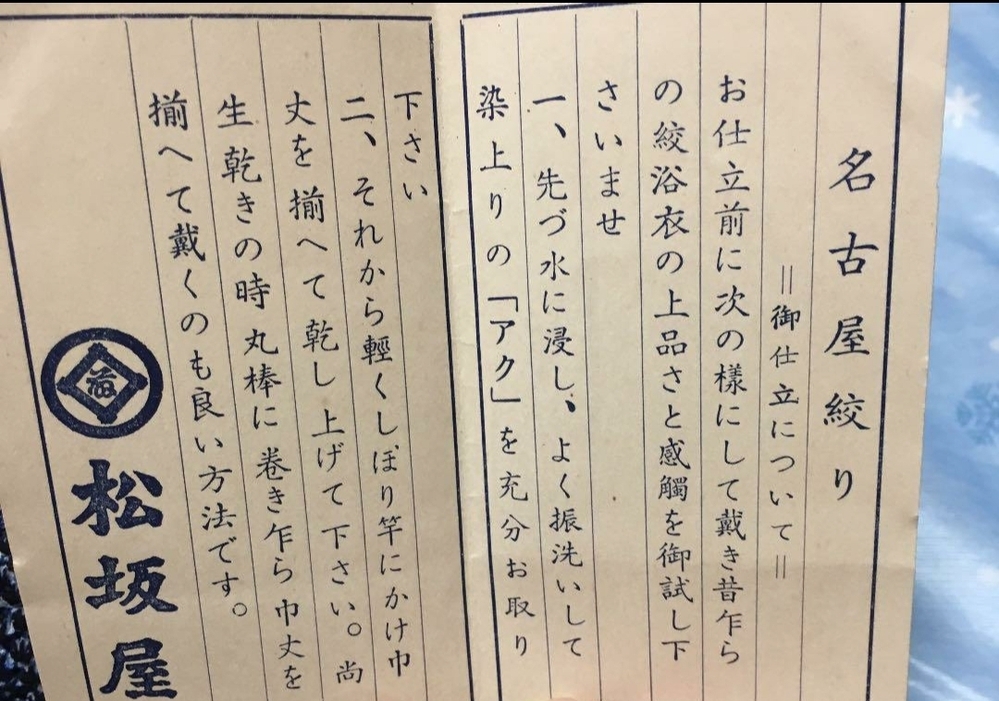 名古屋絞り
＝御仕立について＝
お仕立前に次の様にして戴き昔乍ら
の絞浴衣の上品さと感觸を御試し下
さいませ
一、先づ水に浸し、よく振洗いして
染上りの「アク」を充分お取り
下さい
二、それから輕くしぼり竿にかけ巾
丈を揃へて乾し上げて下さい。尚
生乾きの時丸棒に巻き乍ら巾丈を
揃へて戴くのも良い方法です。
松坂屋